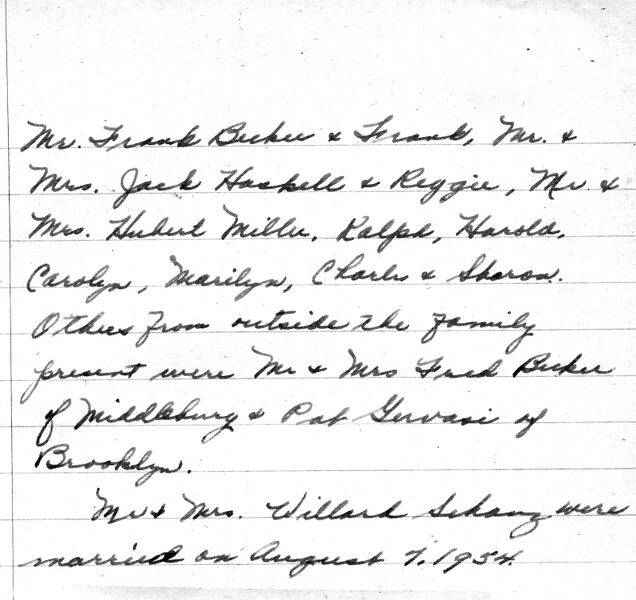 Mr. Frank Becker & Frank, Mr. &
Mrs. Jack Haskell & Reggie, Mr. &
Mrs. Hubert Miller, Ralph, Harold,
Carolyn, Marilyn, Charles & Sharon.
Others from outside the family
present were Mr & Mrs Fred Becker
of Middleburg & Pat Gervasi of
Brooklyn.
Mr & Mrs. Willard Schanz were
married on August 7, 1954.